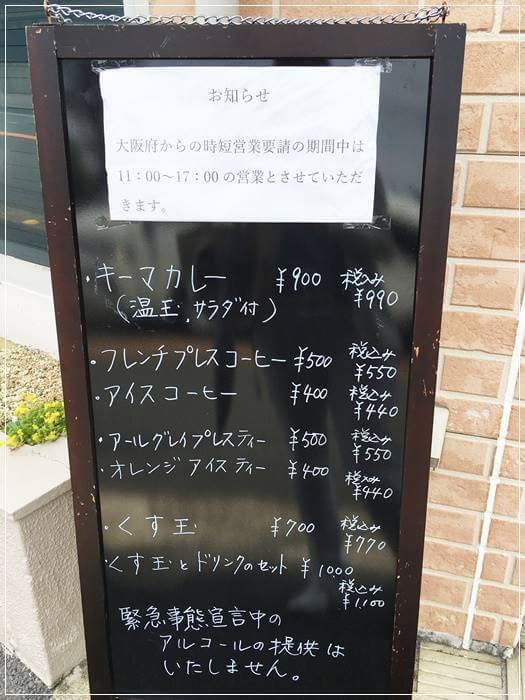 お知らせ
大阪府からの時短営業要請の期間中は
11：00～17：00の営業とさせていただ
きます。
・キーマカレー ¥900 税込み ¥990
（温玉、サラダ付）
・フレンチプレスコーヒー ¥500 税込み ¥550
・アイスコーヒー ¥400 税込み ¥440
・アールグレイプレスティー ¥500 税込み ¥550
・オレンジアイスティー ¥400 税込み ¥440
・くす玉 ¥700 税込み ¥770
・くす玉とドリンクのセット ¥1000
税込み ¥1,100
緊急事態宣言中の
アルコールの提供は
いたしません。